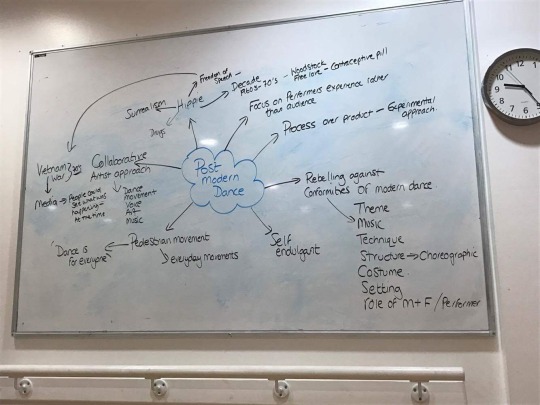 Freedom of
Speech
Decade
1960s-70's
Woodstock
Free love
Contraceptive pill
Surrealism
Hippie
Days
Focus on Performers experience rather
than audience
Process over product - Experimental
approach.
Vietnam
War
70s
Collaborative
Artist approach
Dance
movement
Voice
Art
Music
Media → People could
see what was
happening
at the time
Post
modern
Dance
Rebelling against
conformities of modern dance
Theme
Music
Technique
Structure → Choreographic
Costume.
Setting
role of M + F / Performer
Self
endulgant
Pedestrian movement
everyday movements
'Dance is
for everyone'